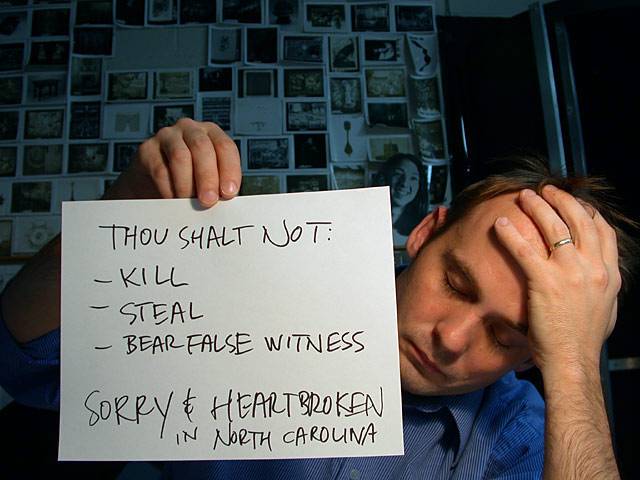 THOU SHALT NOT:
- KILL
- STEAL
- BEAR FALSE WITNESS
SORRY & HEARTBROKEN
IN NORTH CAROLINA